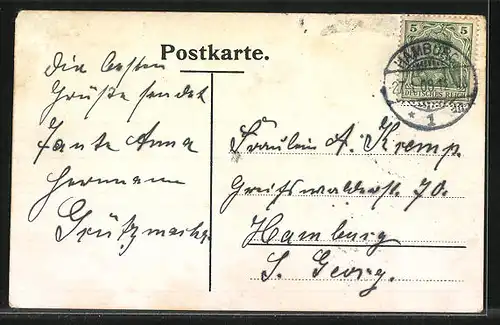 Postkarte.
Die besten
Grüße sendet
Tante Anna
Hermann
5 5
DEUTSCHES REICH
HAMBURG
* 1
Fräulein A. Kremp.
Greifswalderst. 70.
Hamburg
S. Georg.